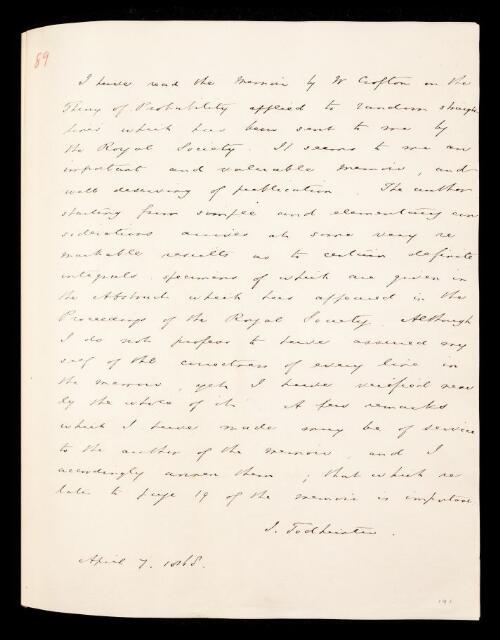 89
I have read the Memoir by Mr Crofton on the
Theory of Probability applied to random straight
lines which has been sent to me by
the Royal Society. It seems to me an
important and valuable memoir, and
well deserving of publication. The author
starting from simple and elementary con
siderations arrives at some very re
markable results as to certain definite
integrals, specimens of which are given in
the Abstract which has appeared in the
Proceedings of the Royal Society. Although
I do not profess to have assured my
self of the correctness of every line in
the memoir, yet I have verified near
ly the whole of it. A few remarks
which I have made may be of service
to the author of the memoir, and I
accordingly annex them; that which re
lates to page 19 of the memoir is important
I. Todhunter.
April 7. 1868.